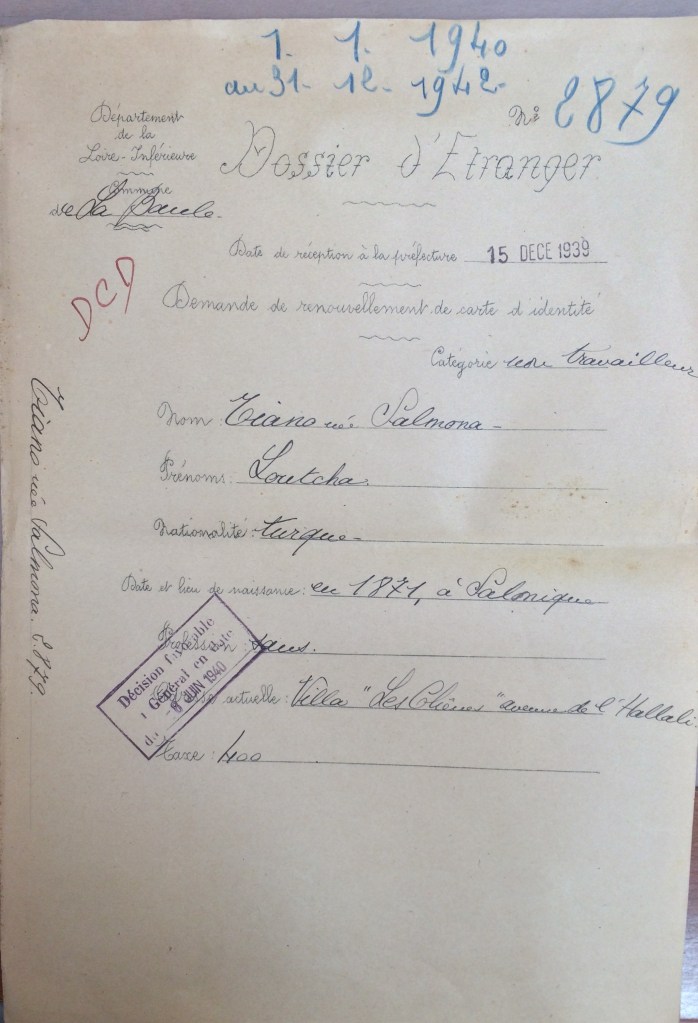 1. 1. 1940
au 31- 12- 1942-
Nº 2879
Département
de la
Loire-Inférieure
Commune
de La Baule.
Dossier d'Etranger
Date de réception à la préfecture 15 DECE 1939
DCD
Demande de renouvellement de carte d'identité
Catégorie non travailleur
Nom: Tiano née Salmona-
Prénoms: Loutcha.
Nationalité: turque-
Date et lieu de naissance: en 1871, à Salonique
Profession: sans.
actuelle: Villa "Les Chênes" avenue de l'Hallali.
Taxe: 400
Décision favorable
Général en
du -8 JUIN 1940
Tiano née Salmona. 2.879.